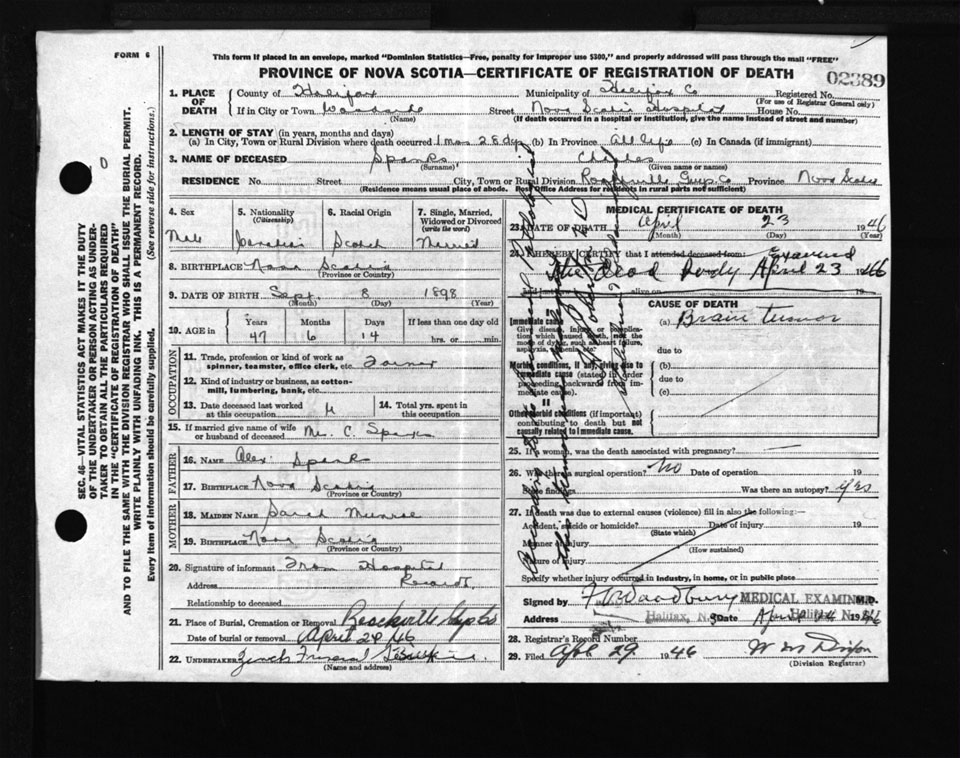 FORM 6
This form if placed in an envelope, marked "Dominion Statistics—Free, penalty for improper use $300," and properly addressed will pass through the mail "FREE"
PROVINCE OF NOVA SCOTIA—CERTIFICATE OF REGISTRATION OF DEATH
02389
SEC. 46—VITAL STATISTICS ACT MAKES IT THE DUTY
OF THE UNDERTAKER OR PERSON ACTING AS UNDER-
TAKER TO OBTAIN ALL THE PARTICULARS REQUIRED
IN THE "CERTIFICATE OF REGISTRATION OF DEATH"
AND TO FILE THE SAME WITH THE DIVISION REGISTRAR WHO SHALL ISSUE THE BURIAL PERMIT.
WRITE PLAINLY WITH UNFADING INK. THIS IS A PERMANENT RECORD.
Every item of information should be carefully supplied. (See reverse side for instructions.)
1. PLACE OF DEATH
County of Halifax Municipality of Halifax Co Registered No.
(For use of Registrar General only)
If in City or Town Street Nova Scotia Hospital House No.
(Name) (If death occurred in a hospital or institution, give the name instead of street and number)
2. LENGTH OF STAY (in years, months and days)
(a) In City, Town or Rural Division where death occurred 1 mos 28 dys (b) In Province All life (c) In Canada (if immigrant)
3. NAME OF DECEASED Spanks Charles
(Surname) (Given name or names)
RESIDENCE No. Street City, Town or Rural Division Guys. Co Province Nova Scotia
(Residence means usual place of abode. Post Office Address for residents in rural parts not sufficient)
4. Sex
Male
5. Nationality
(Citizenship)
Canadian
6. Racial Origin
Scotch
7. Single, Married,
Widowed or Divorced
(write the word)
Married
8. BIRTHPLACE Nova Scotia
(Province or Country)
9. DATE OF BIRTH Sept. 8 1898
(Month) (Day) (Year)
10. AGE in
Years Months Days If less than one day old
47 6 14 hrs. or min.
OCCUPATION
11. Trade, profession or kind of work as
spinner, teamster, office clerk, etc.
12. Kind of industry or business, as cotton-
mill, lumbering, bank, etc.
13. Date deceased last worked
at this occupation
14. Total yrs. spent in
this occupation
15. If married give name of wife
or husband of deceased Mrs. C. Spanks
FATHER
16. Name Alex Spanks
17. Birthplace Nova Scotia
(Province or Country)
MOTHER
18. Maiden Name Sarah Munroe
19. Birthplace Nova Scotia
(Province or Country)
20. Signature of informant From Hospital
Address Records
Relationship to deceased
21. Place of Burial, Cremation or Removal
Date of burial or removal April 24/46
22. Undertaker Funeral
(Name and address)
MEDICAL CERTIFICATE OF DEATH
23. DATE OF DEATH April 23 1946
(Month) (Day) (Year)
24. I HEREBY CERTIFY that I attended deceased from: Examined
the dead body April 23 1946
alive on 19
CAUSE OF DEATH
I
Immediate cause
Give disease, injury or complica-
tion which caused death, not the
mode of dying, such as heart failure,
asphyxia, asthenia, etc.
(a) Brain tumor
due to
Morbid conditions, if any, giving rise to
immediate cause (stated in order
proceeding backwards from im-
mediate cause).
(b)
due to
(c)
II
Other morbid conditions (if important)
contributing to death but not
causally related to immediate cause.
25. If a woman, was the death associated with pregnancy?
26. Was there a surgical operation? No Date of operation 19
State findings Was there an autopsy? yes
27. If death was due to external causes (violence) fill in also the following:—
Accident, suicide or homicide? Date of injury 19
(State which)
Manner of injury
(How sustained)
Nature of injury
Specify whether injury occurred in industry, in home, or in public place
Signed by Woodbury MEDICAL EXAMINER M.D.
Halifax, N.S. Date April 24 1946
28. Registrar's Record Number
29. Filed Apl 29. 1946 W M Dixon
(Division Registrar)